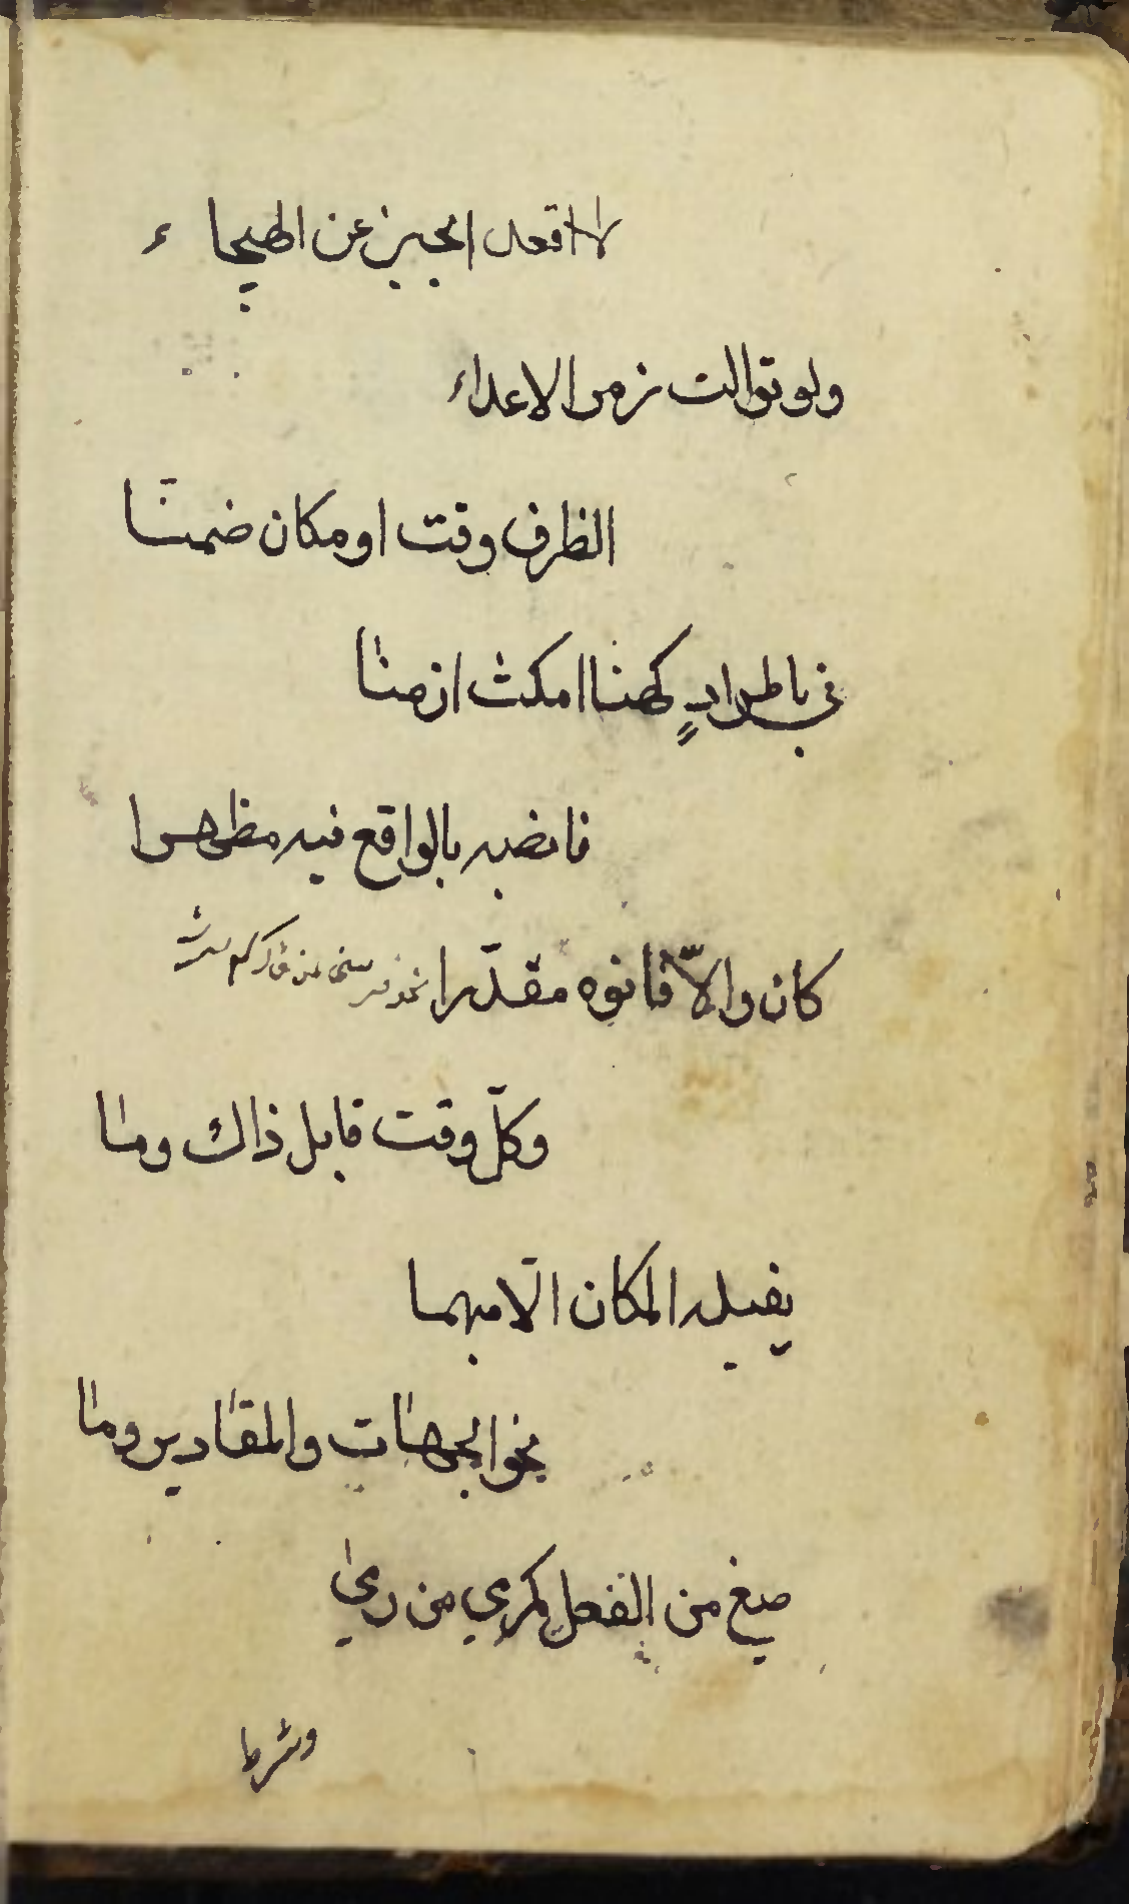 لا اقعد الجبن عن الهيجاء
ولو توالت زمر الاعداء
الظرف وقت او مكان ضمنا
في باطراد كهنا امكث ازمنا
فانصبه بالواقع فيه مظهرا
كان والاّ فانوه مقدّرا
وكلّ وقت قابل ذاك وما
يقبله المكان الّا مبهما
نحو الجهات والمقادير وما
صيغ من الفعل كمرمي من رمى
وشرط